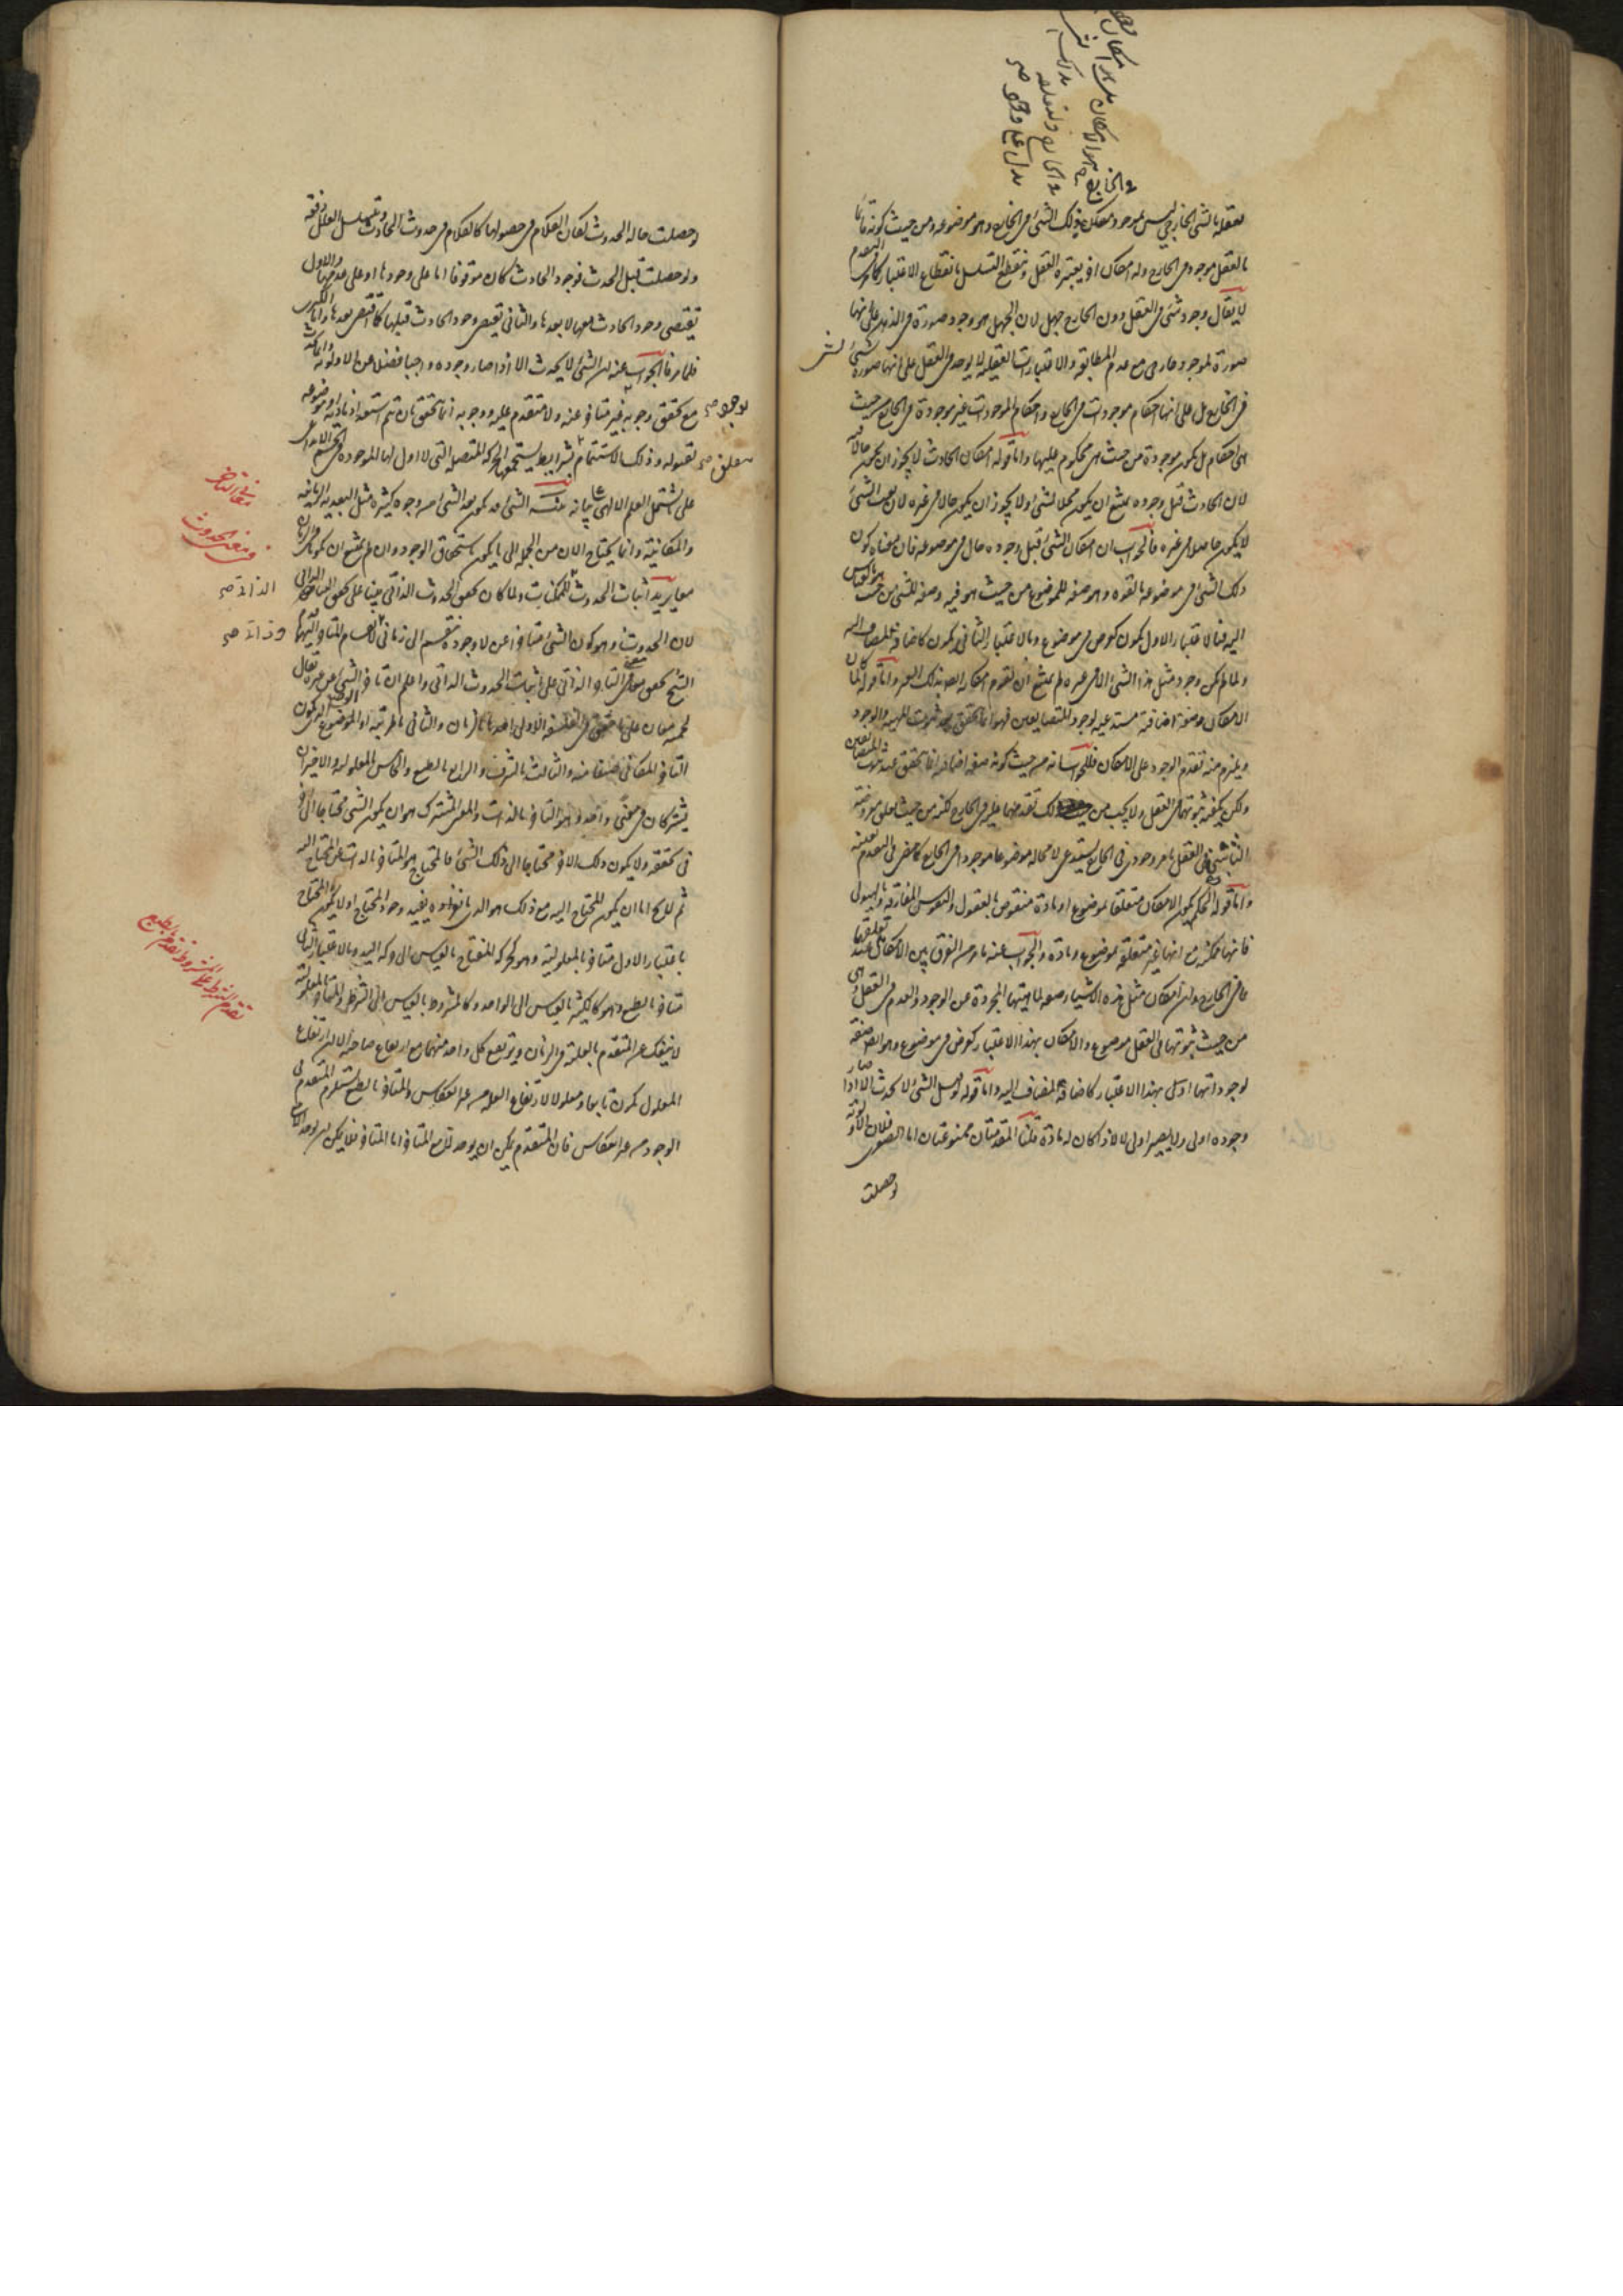 تعقله بالشئ الخارجي ليس بموجود ممكن في ذلك الشئ في الخارج وهو موضوعه ومن حيث كونه قائما
بالعقل موجود في الخارج وله امكان اخر يعتبره العقل وينقطع التسلسل بانقطاع الاعتبار كما في التقدم
لا يقال وجود شئ في العقل دون الخارج جهل لان الجهل هو وجود صورة في الذهن على انها
صورة لموجود خارجي مع عدم المطابقة والاعتبارات العقلية لا يوجد في العقل على انها صورة شئ
في الخارج بل على انها احكام موجودات في الخارج واحكام الموجودات غير موجودة في الخارج من حيث
هي احكام بل يكون موجودة من حيث هي محكوم عليها واما قوله امكان الحادث لا يجوز ان يكون حالا فيه
لان الحادث قبل وجوده يمتنع ان يكون محلا لشئ ولا يجوز ان يكون حالا في غيره لان نعت الشئ
لا يكون حاصلا في غيره فالجواب ان امكان الشئ قبل وجوده حال في موضوعه فان معناه كون
ذلك الشئ في موضوعه بالقوة وهو صفة للموضوع من حيث هو فيه وصفة للشئ من حيث هو بالقياس
اليه فبالاعتبار الاول يكون كعرض في موضوع وبالاعتبار الثاني يكون كاضافة للمضاف اليه
ولما لم يكن وجود مثل هذا الشئ الا في غيره لم يمتنع ان يقوم امكانه ايضا بذلك الغير واما قوله لما كان
الامكان صفة اضافية مستدعية لوجود المتضايفين فهو انما يتحقق بعد ثبوت المهية والوجود
ويلزم منه تقدم الوجود على الامكان فالجواب انه من حيث كونه صفة اضافية انما يتحقق عند ثبوت المتضايفين
ولكن يكفيه ثبوتهما في العقل ولا يجب من ذلك تقدمهما عليه في الخارج لكنه من حيث تعلق معروضه
الثابتين في العقل بامر وجودي في الخارج يستدعي لا محالة موضوعا موجودا في الخارج كما مضى في التقدم بعينه
واما قوله الحكم بكون الامكان متعلقا بموضوع او مادة منقوض بالعقول والنفوس المفارقة والهيولى
فانها ممكنة مع انها غير متعلقة بموضوع ومادة والجواب عنه ما مر من الفرق بين الامكان عند تعلقها
بما في الخارج وان امكان مثل هذه الاشياء صفة لماهيتها المجردة عن الوجود والعدم في العقل وهي
من حيث ثبوتها في العقل موضوع والامكان بهذا الاعتبار كعرض في موضوع وهو ايضا صفة
لوجوداتها اذ هي بهذا الاعتبار كاضافة للمضاف اليه واما قوله قيل الشئ لا يحدث الا اذا صار
وجوده اولى ولا يصير اولى الا اذا كان له مادة قلنا المقدمتان ممنوعتان اما الصغرى فلان الاولوية
لو حصلت
لو حصلت حالة الحدوث لكان الكلام في حصولها كالكلام في حدوث الحادث ويتسلسل العلل دفعة
ولو حصلت قبل الحدث فوجود الحادث كان موقوفا اما على وجودها او على عدمها والاول
يقتضي وجود الحادث معها لا بعدها والثاني يقتضي وجود الحادث قبلها كما اقتضى بعدها واما الكبرى
فلما مر فالجواب عنه ان الشئ لا يحدث الا اذا صار وجوده واجبا فضلا عن الاولوية وان الحادث
مع تحقق وجوبه غير متاخر عنه ولا متقدم عليه ووجوبه انما تحقق بان تم استعداد مادته او موضوعه
لقبوله وذلك لاستتمام شرايط يستجمعها الحركة المتصلة التي لا اول لها الموجودة في الجسم الابداعي
على ما يشتمل العلم الالهي على بيانه تنبيه الشئ قد يكون بعد الشئ من وجوه كثيرة مثل البعدية الزمانية
والمكانية وانما يحتاج الان من الجملة الى ما يكون باستحقاق الوجود وان لم يمتنع ان يكونا في الزمان
معا يريد اثبات الحدوث للممكنات ولما كان تحقق الحدوث الذاتي مبنيا على تحقق التاخر الذاتي
لان الحدوث وهو كون الشئ متاخرا عن لا وجوده منقسم الى زماني لانقسام التاخر اليهما قدم
الشيخ تحقق معنى التاخر الذاتي على اثبات الحدوث الذاتي واعلم ان تاخر الشئ عن غيره يقال
بخمسة معان على ما تحقق في الفلسفة الاولى احدها بالزمان والثاني بالمرتبة او الموضع الذي يكون
التاخر المكاني صنفا منه والثالث بالشرف والرابع بالطبع والخامس بالمعلولية والاخيران
يشتركان في معنى واحد وهو التاخر بالذات والمعنى المشترك هو ان يكون الشئ محتاجا الى اخر
في تحققه ولا يكون ذلك الاخر محتاجا الى ذلك الشئ فالمحتاج هو المتاخر بالذات عن المحتاج اليه
ثم لا يخلو اما ان يكون المحتاج اليه مع ذلك هو الذي بانفراده يفيد وجود المحتاج او لا يكون والمحتاج
باعتبار الاول متاخر بالمعلولية وهو كحركة المفتاح بالقياس الى حركة اليد وبالاعتبار الثاني
متاخر بالطبع وهو كالكثير بالقياس الى الواحد وكالمشروط بالقياس الى الشرط والمتاخر بالمعلولية
لا ينفك عن المتقدم بالعلية في الزمان ويرتفع كل واحد منهما مع ارتفاع صاحبه الا ان ارتفاع
المعلول يكون تابعا ومعلولا لارتفاع العلة من غير انعكاس والمتاخر بالطبع يستلزم المتقدم في
الوجود من غير انعكاس فان المتقدم يمكن ان يوجد لا مع المتاخر اما المتاخر فلا يمكن ان يوجد الا مع
معنى التاخر
ومعنى الحدوث
الذاتي صح
وذاتي صح
تقدم الشرط على المشروط تقدم بالطبع